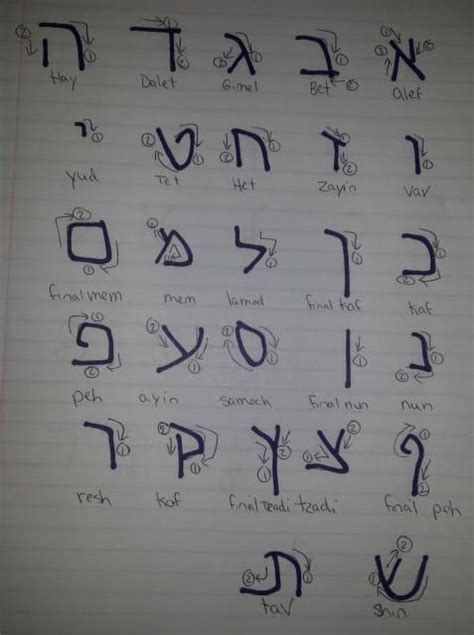 א ב ג ד ה
Hay Dalet Gimel Bet alef
ו ז ח ט י
yud Tet Het Zayin vav
כ ך ל מ ם
final mem mem lamad final kaf kaf
נ ן ס ע פ
peh ayin samech final nun nun
ף צ ץ ק ר
resh kof final tzadi tzadi final peh
ש ת
tav shin